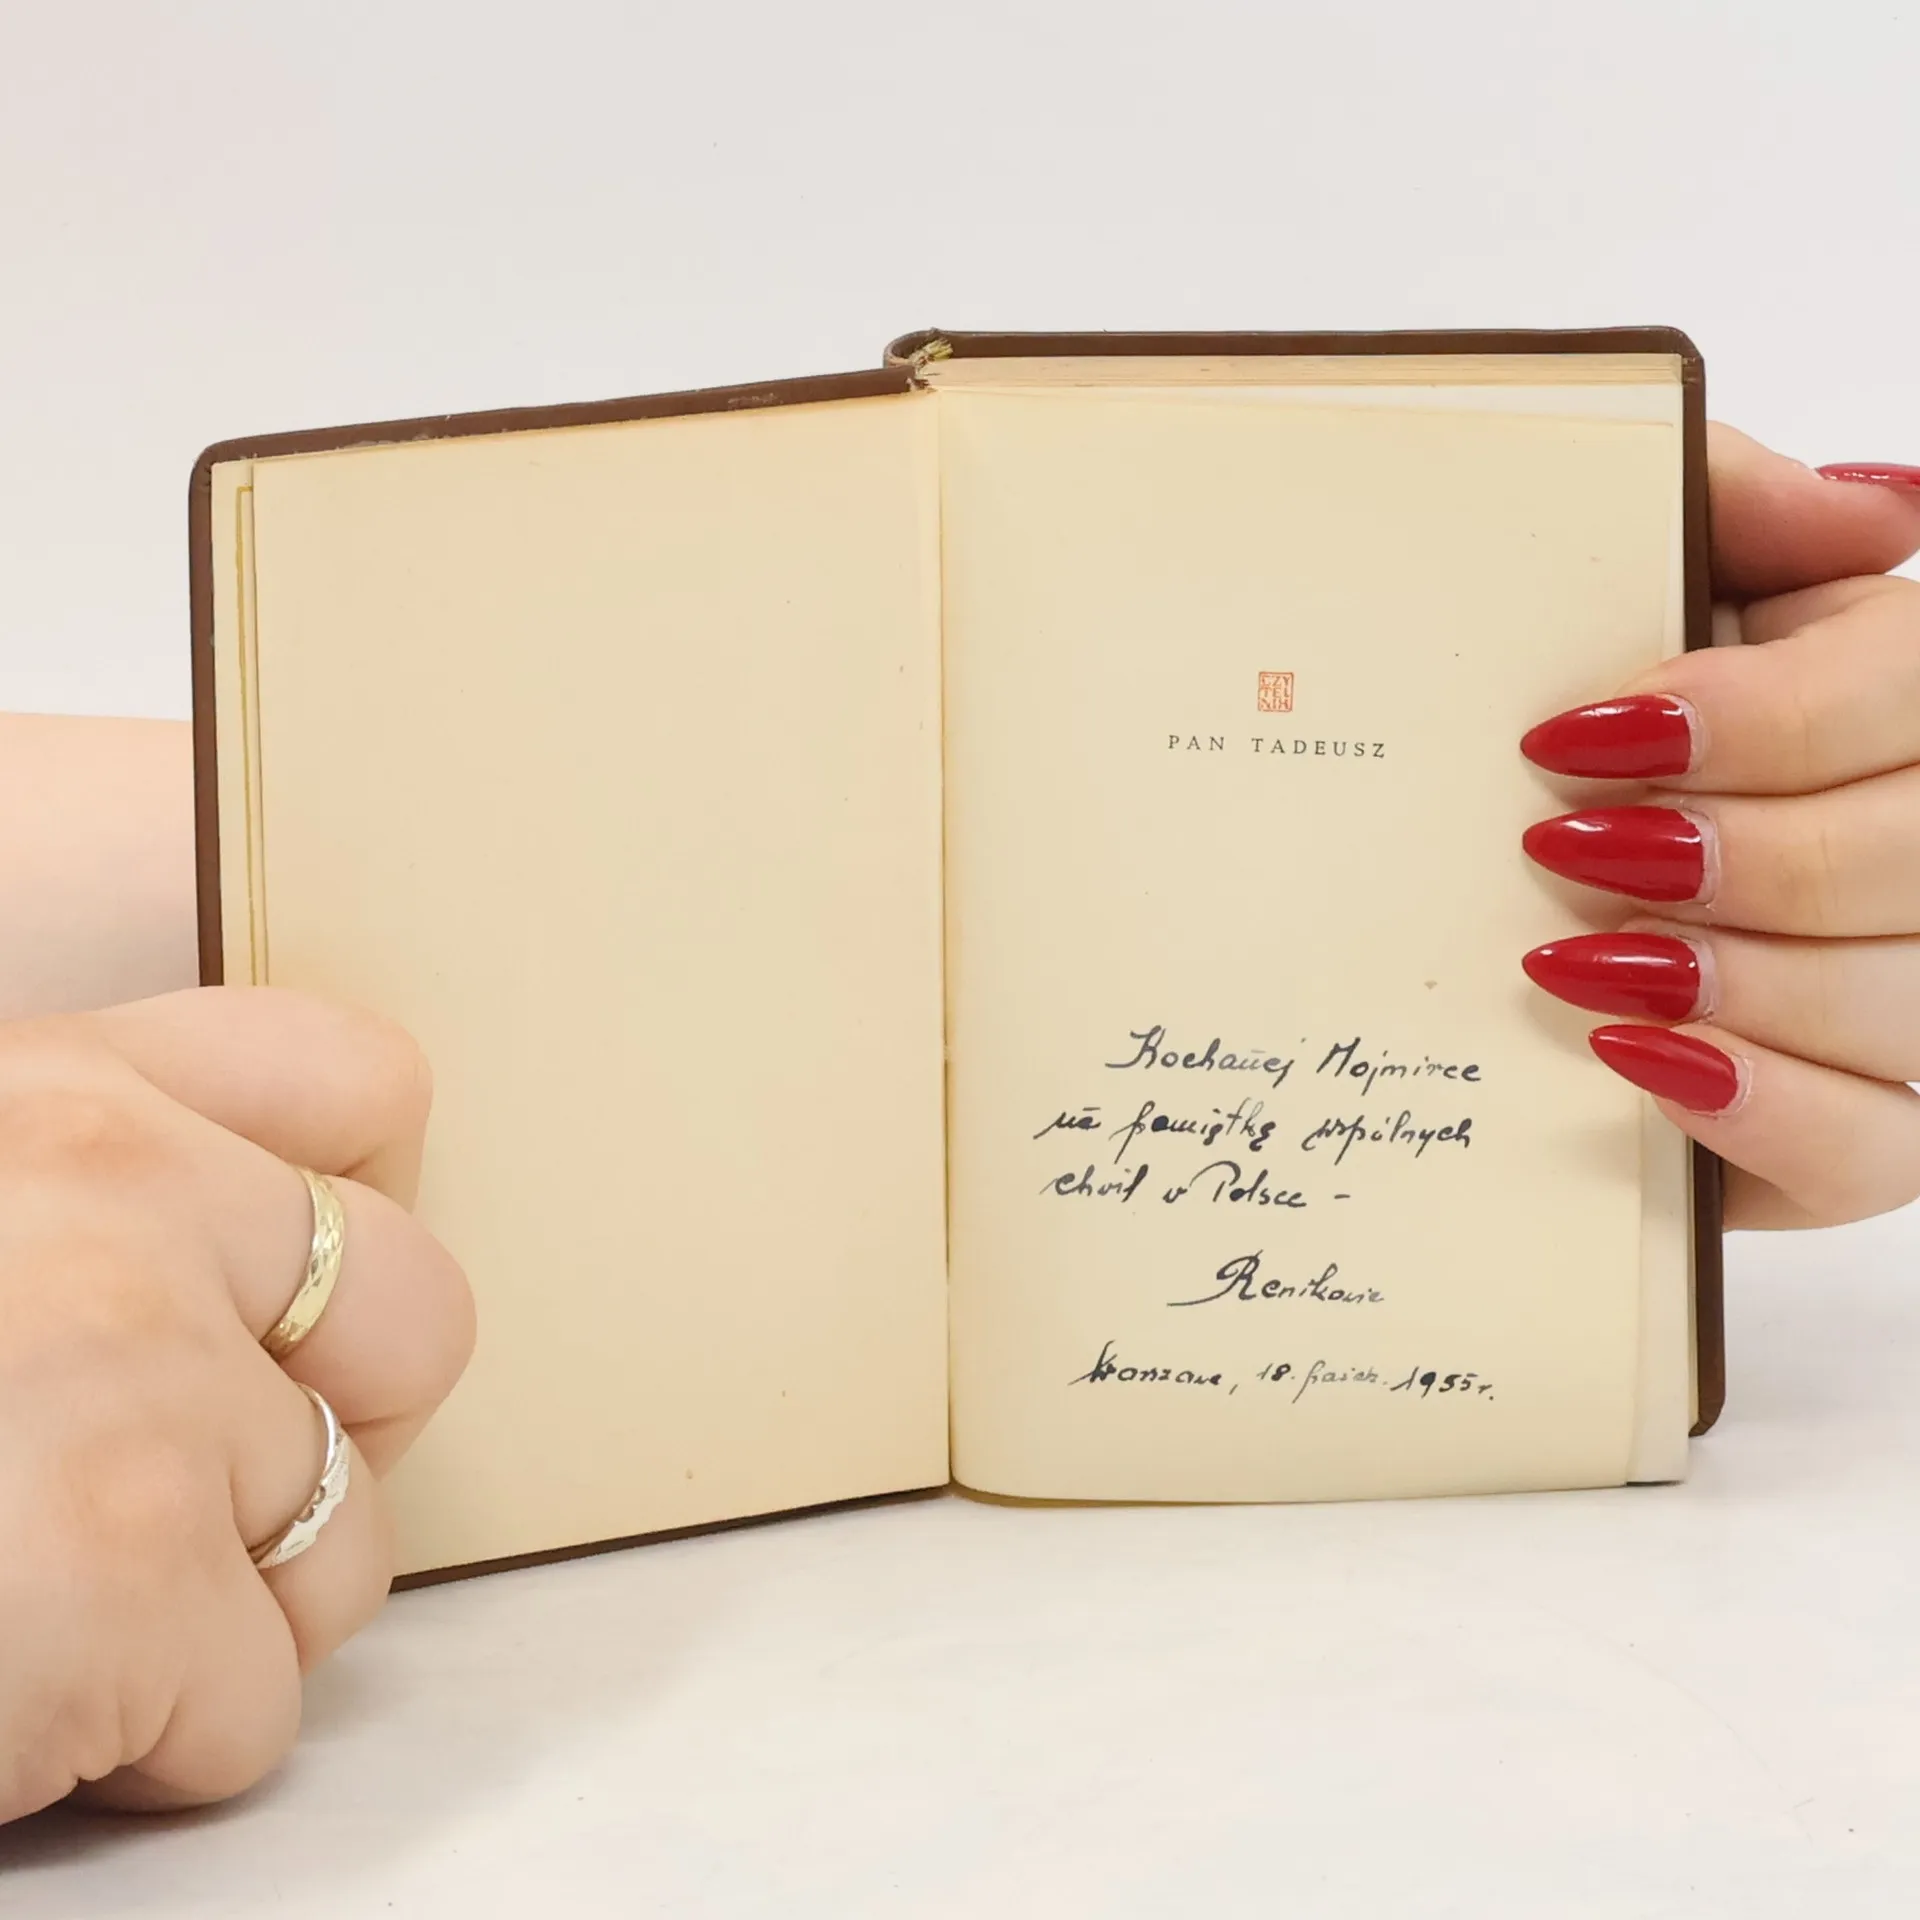 CZY
TEL
NIK
PAN TADEUSZ
Kochanej Mojmirce
na pamiątkę wspólnych
chwil w Polsce –
Renikowie
Warszawa, 18. paźdz. 1955 r.